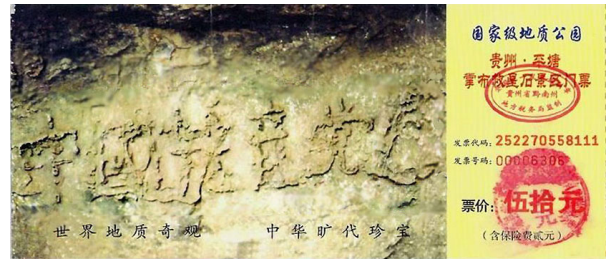 中國共产党亡
世界地质奇观 中华旷代珍宝
国家级地质公园
贵州·平塘
掌布救星石景区门票
贵州省黔南州
地方税务局监制
发票代码: 252270558111
发票号码: 00006306
票价: 伍拾元
(含保险费贰元)